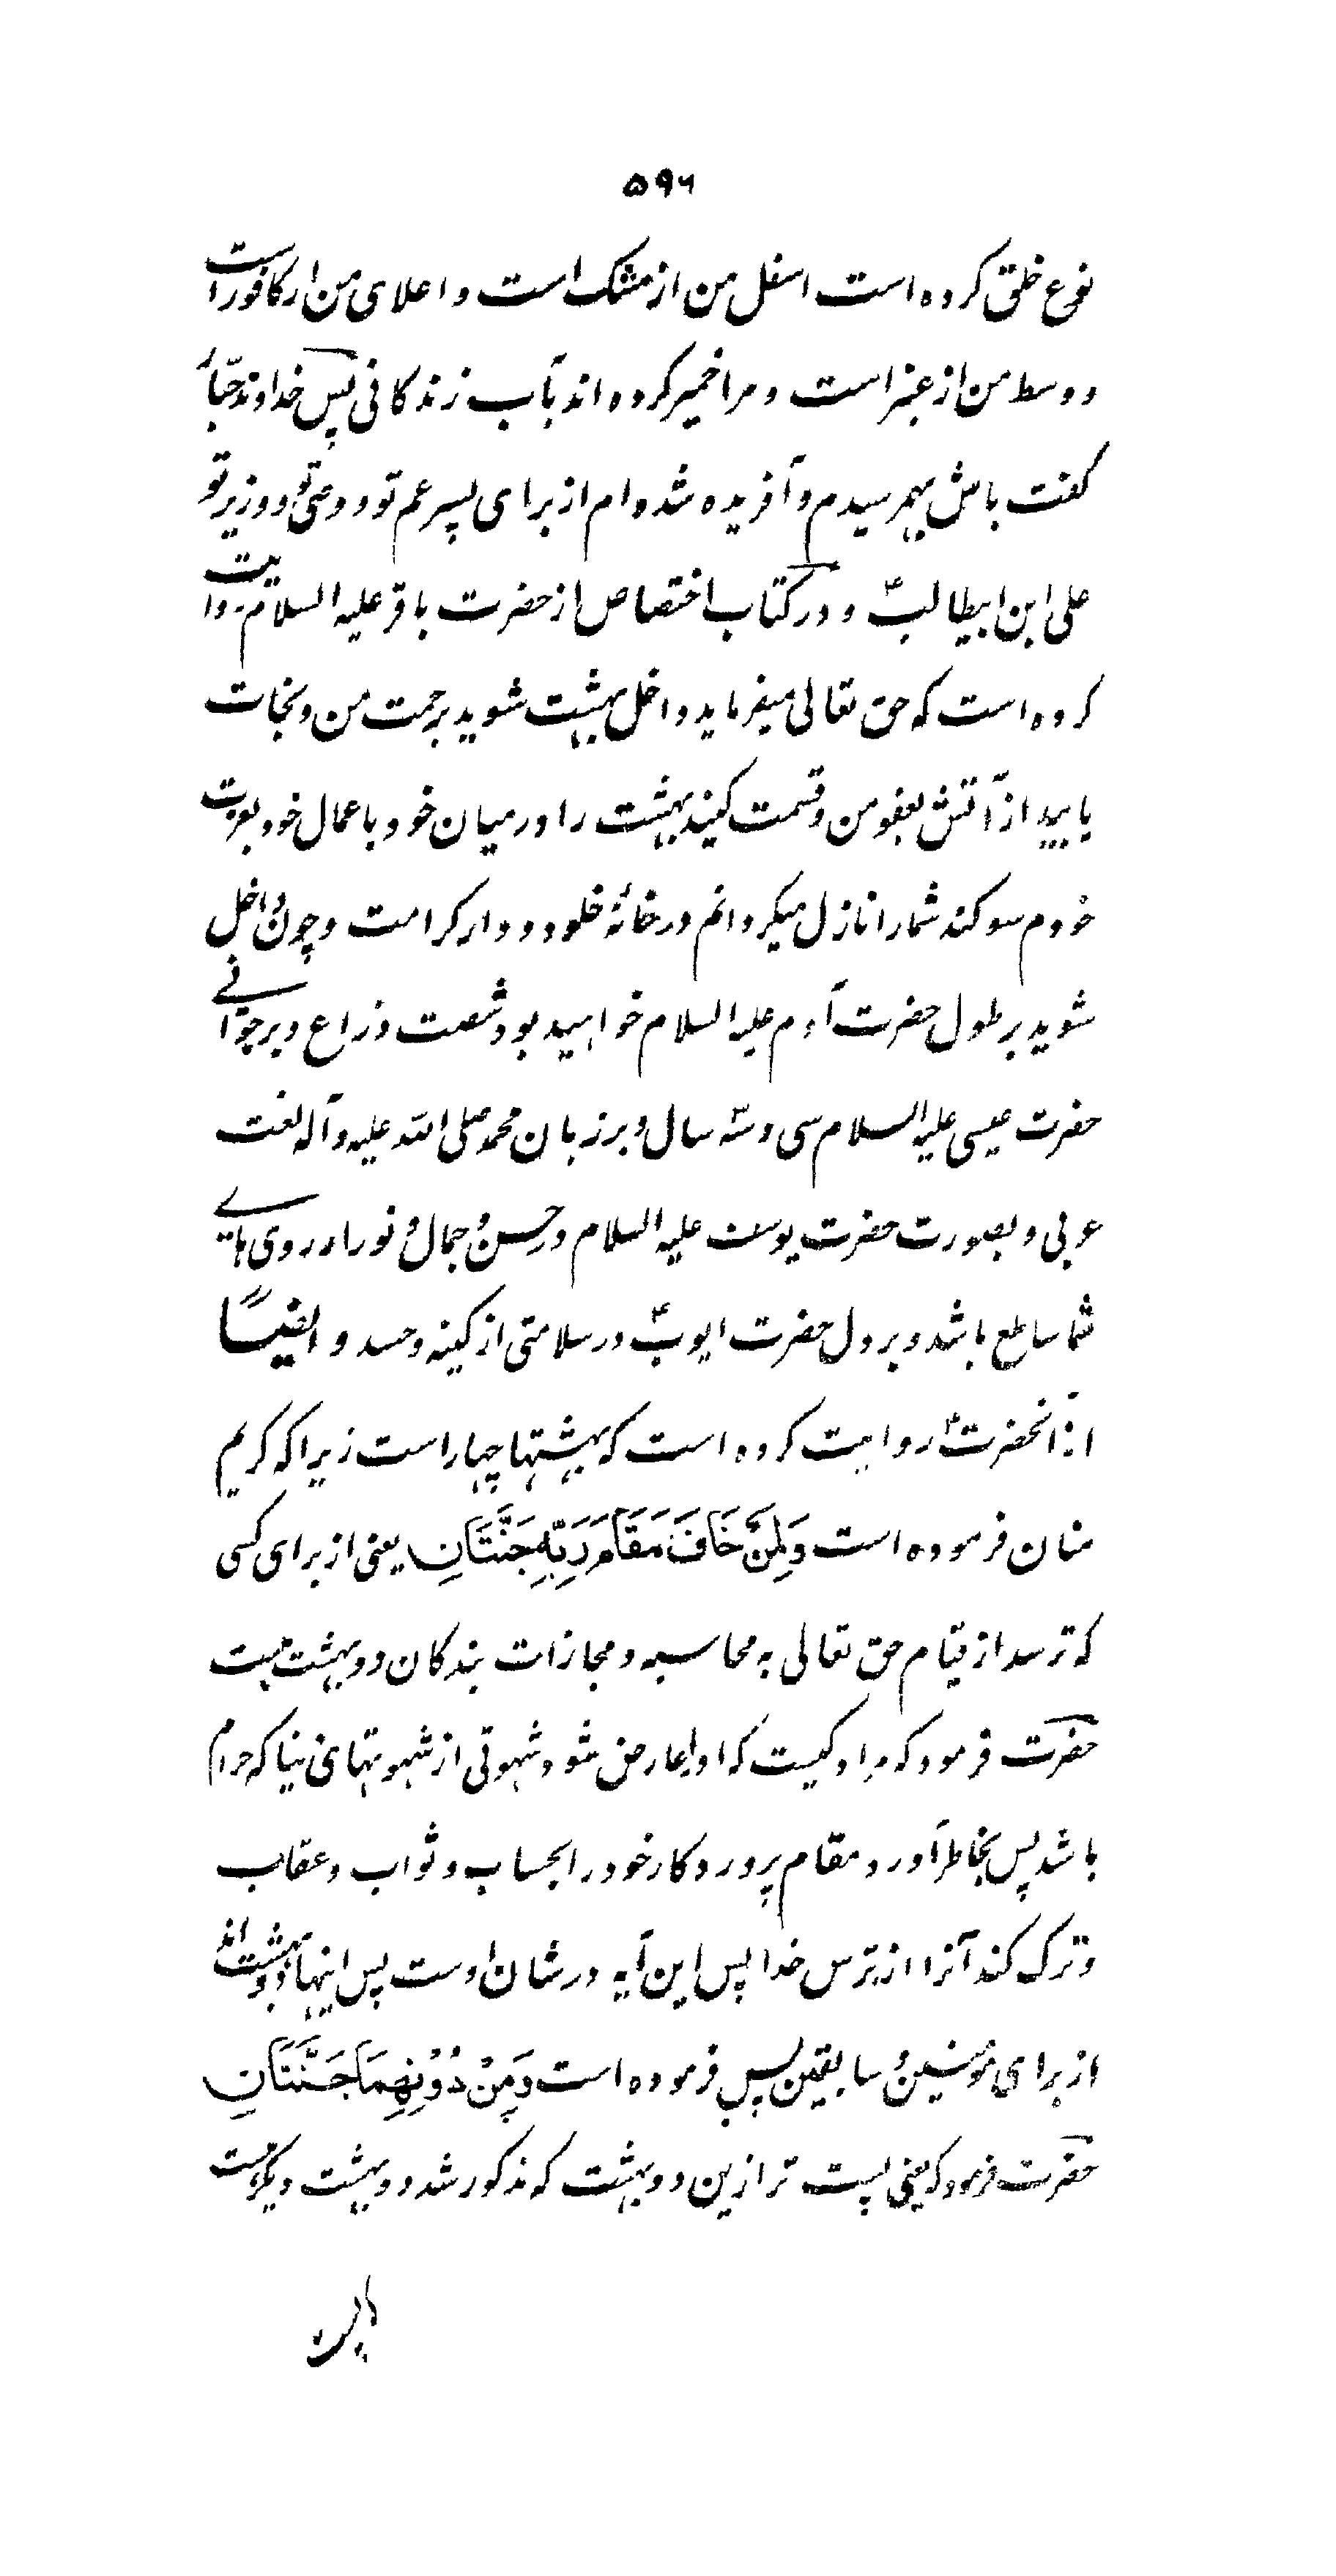 ۵۹۶
نوع خلق کرده است اسفل من از مشک است و اعلای من از کافور است
و وسط من از عنبر است و مرا خمیر کرده اند بآب زندگانی پس خداوند جبّار
گفت باش بهمرسیدم و آفریده شده ام از برای پسر عم تو و وصی تو و وزیر تو
علی ابن ابیطالبؑ و در کتاب اختصاص از حضرت باقر علیه السلام روایت
کرده است که حق تعالی میفرماید داخل بهشت شوید برحمت من و نجات
یابید از آتش بعفو من و قسمت کنید بهشت را در میان خود باعمال خود بعزت
خودم سوگند شما را نازل میگردانم در خانهٔ خلود و دار کرامت و چون داخل
شوید بر طول حضرت آدم علیه السلام خواهید بود شصت ذراع و بر جوانے
حضرت عیسی علیه السلام سی و سه سال و بر زبان محمد صلی الله علیه و آله لغت
عربی و بصورت حضرت یوسف علیه السلام در حسن و جمال و نور از روی هایے
شما ساطع باشد و بر دل حضرت ایوبؑ در سلامتی از کینه و حسد و ایضاً
از آنحضرتؑ روایت کرده است که بهشتها چهار است زیرا که کریم
منان فرموده است وَلِمَنْ خَافَ مَقَامَ رَبِّهِ جَنَّتَانِ یعنی از برای کسی
که ترسد از قیام حق تعالی به محاسبه و مجازات بندگان دو بهشت هست
حضرت فرمود که مراد کیست که او را عارض شود شهوتی از شهوتهای دنیا که حرام
باشد پس بخاطر آورد مقام پروردکار خود را بحساب و ثواب و عقاب
و ترک کند آنرا از ترس خدا پس این آیه در شان اوست پس اینها دو بهشت اند
از برای مؤمنین و سابقین پس فرموده است وَمِنْ دُوْنِهِمَا جَنَّتَانِ
حضرت فرمود که یعنی پست تر ازین دو بهشت که مذکور شد دو بهشت دیگر هست